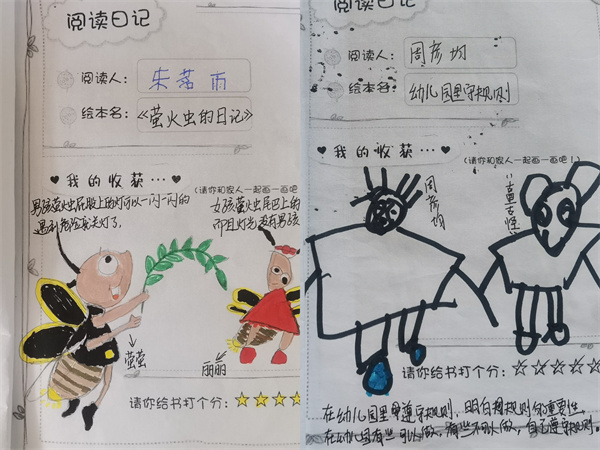 阅读日记
阅读人：朱茗雨
绘本名：《萤火虫的日记》
我的收获…
(请你和家人一起画一画吧
男孩萤火虫尾股上的灯可以一闪一闪的
遇到危险要关灯了.
女孩萤火虫尾巴上的
而且灯光没有男孩
萤萤
丽丽
请你给书打个分：
阅读日记
阅读人：周彦均
绘本名：幼儿园里守规则
我的收获…
(请你和家人一起画一画吧！)
周彦均
请你给书打个分：
在幼儿园里要遵守规则，明白规则的重要性，
在幼儿园有些可以做，有些不可以做，自己遵守规则。